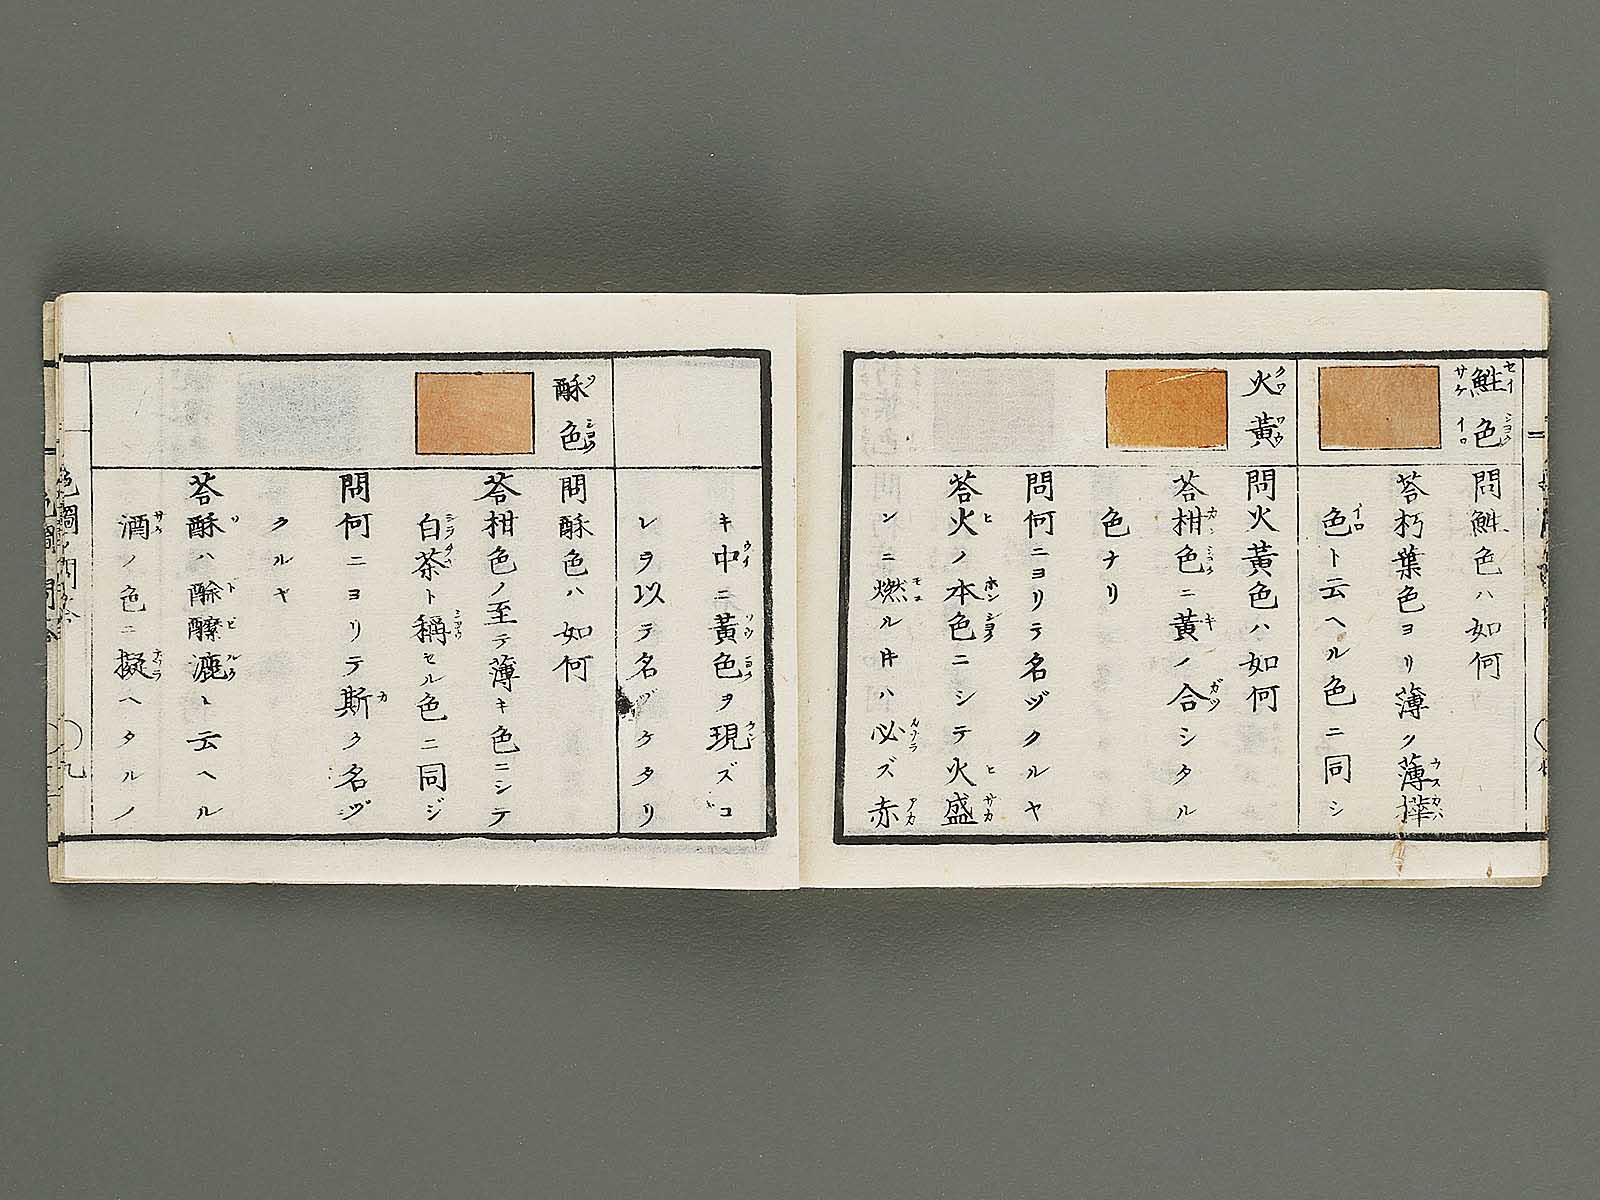 鮏色
問鮏色ハ如何
荅朽葉色ヨリ薄ク薄樺
色ト云ヘル色ニ同シ
火黃
問火黃色ハ如何
荅柑色ニ黃ノ合シタル
色ナリ
問何ニヨリテ名ヅクルヤ
荅火ノ本色ニシテ火盛
ンニ燃ル𪜈ハ必ズ赤
キ中ニ黃色ヲ現ズコ
レヲ以テ名ヅケタリ
酥色
問酥色ハ如何
荅柑色ノ至テ薄キ色ニシテ
白茶ト稱セル色ニ同ジ
問何ニヨリテ斯ク名ヅ
クルヤ
荅酥ハ酴醿漉ト云ヘル
酒ノ色ニ擬ヘタルノ
色圖問荅
九